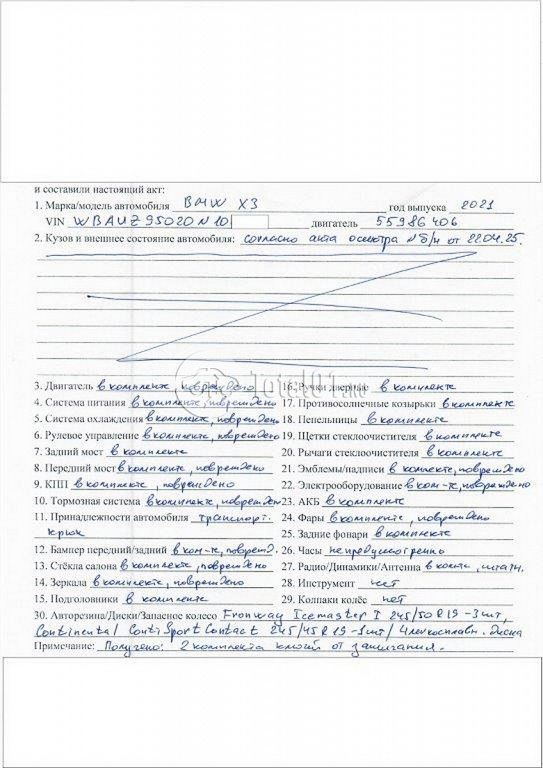 и составили настоящий акт:
1. Марка/модель автомобиля BMW X3 год выпуска 2021
VIN WBAUZ95020N10 двигатель 55986406
2. Кузов и внешнее состояние автомобиля: согласно акта осмотра №б/н от 22.04.25.
3. Двигатель в комплекте, повреждено
16. Ручки дверные в комплекте
4. Система питания в комплекте, повреждено
17. Противосолнечные козырьки в комплекте
5. Система охлаждения в комплекте, повреждено
18. Пепельницы в комплекте
6. Рулевое управление в комплекте, повреждено
19. Щетки стеклоочистителя в комплекте
7. Задний мост в комплекте
20. Рычаги стеклоочистителя в комплекте
8. Передний мост в комплекте, повреждено
21. Эмблемы/надписи в комплекте, повреждено
9. КПП в комплекте, повреждено
22. Электрооборудование в ком-те, повреждено
10. Тормозная система в комплекте, повреждено
23. АКБ в комплекте
11. Принадлежности автомобиля транспорт.
крюк
24. Фары в комплекте, повреждено
25. Задние фонари в комплекте
12. Бампер передний/задний в ком-те, поврежд.
26. Часы не предусмотрено
13. Стёкла салона в комплекте, повреждено
27. Радио/Динамики/Антенна в компл, штатн.
14. Зеркала в комплекте, повреждено
28. Инструмент нет
15. Подголовники в комплекте
29. Колпаки колёс нет
30. Авторезина/Диски/Запасное колесо Fronway Icemaster I 245/50 R19 - 3шт,
Continental ContiSportContact 245/45 R19 - 1шт / 4 легкосплавн. диска
Примечание: Получено: 2 комплекта ключей от зажигания.
Total01.ru